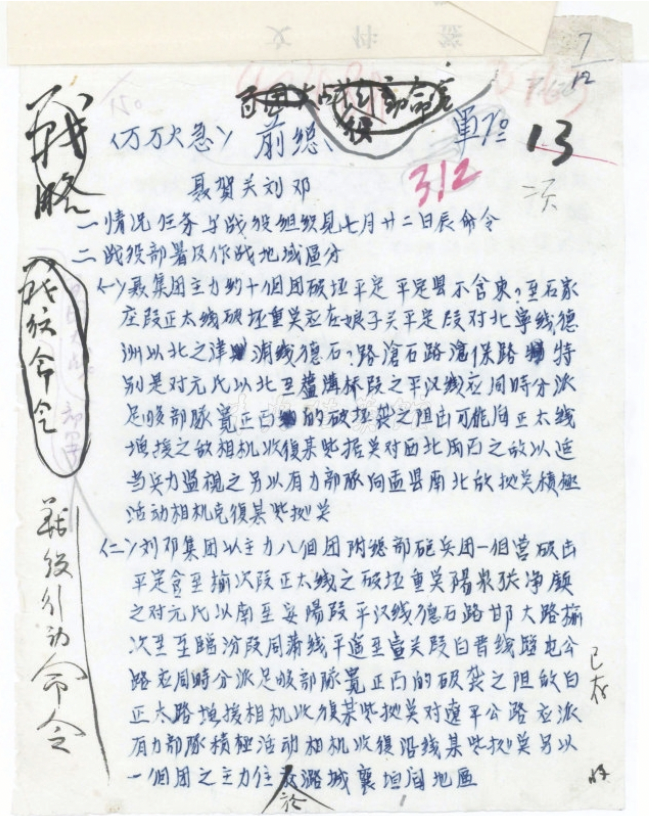 7/12
百团大战行动命令
战役
（万万火急） 前总、
军Nº 13
312
聂贺关刘邓
一 情况任务与战役组织见七月廿二日辰命令
二 战役部署及作战地域區分
（一）聂集团主力约十個团破坏平定 平定县不含東？至石家
庄段正太线破坏重奌应在娘子关平定段对北寧线德
洲以北之津浦线德石？路滄石路滄保路 特
别是对元氏以北至蘆溝桥段之平汉线应同時分派
足够部队寬正面的破坏袭之阻击可能向正太线
增援之敌相机收復某些据奌对西北周西之敌以适
当兵力监视之另以有力部队向盂县南北敌拠奌積極
活动相机克復某些拠奌
（二）刘邓集团以主力八個团附總部砲兵团一個营破击
平定含至榆次段正太线之破坏重奌陽泉张净鎮
之对元氏以南至安陽段平汉线德石路邯大路榆
次至至臨汾段同蒲线平遥至壺关段白晋线臨屯公
路应同時分派足够部队寬正面的破袭之阻敌向
正太路增援相机收復某些拠奌对遼平公路应派
有力部队積極活动相机收復沿线某些拠奌另以
一個团之主力位 潞城襄垣间地區
於
戰略
战役命令
戰役行动命令
已存